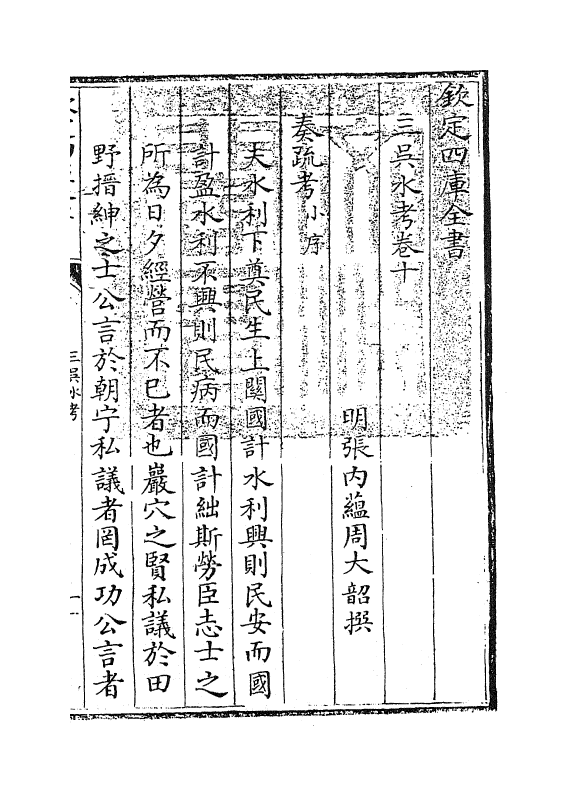 欽定四庫全書
三吳水考卷十
明張內蘊周大韶撰
奏疏考小序
夫水利下奠民生上關國計水利興則民安而國
計盈水利不興則民病而國計絀斯勞臣志士之
所為日夕經營而不已者也巖穴之賢私議於田
野搢紳之士公言於朝宁私議者罔成功公言者
三吳水考